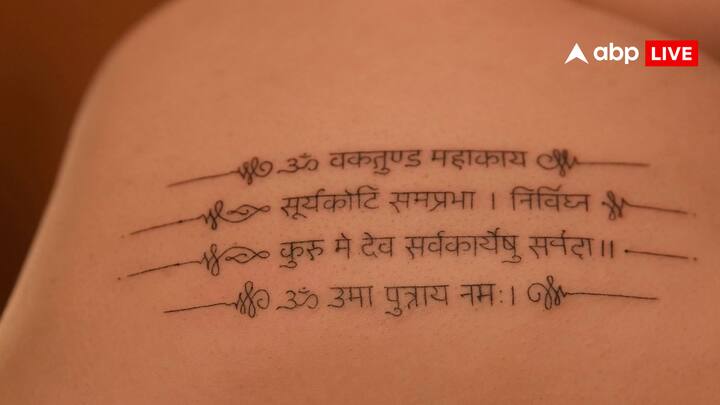 abp LIVE
ॐ वकतुण्ड महाकाय
सूर्यकोटि समप्रभा । निर्विघ्न
कुरु मे देव सर्वकार्येषु सर्वदा॥
ॐ उमा पुत्राय नमः।